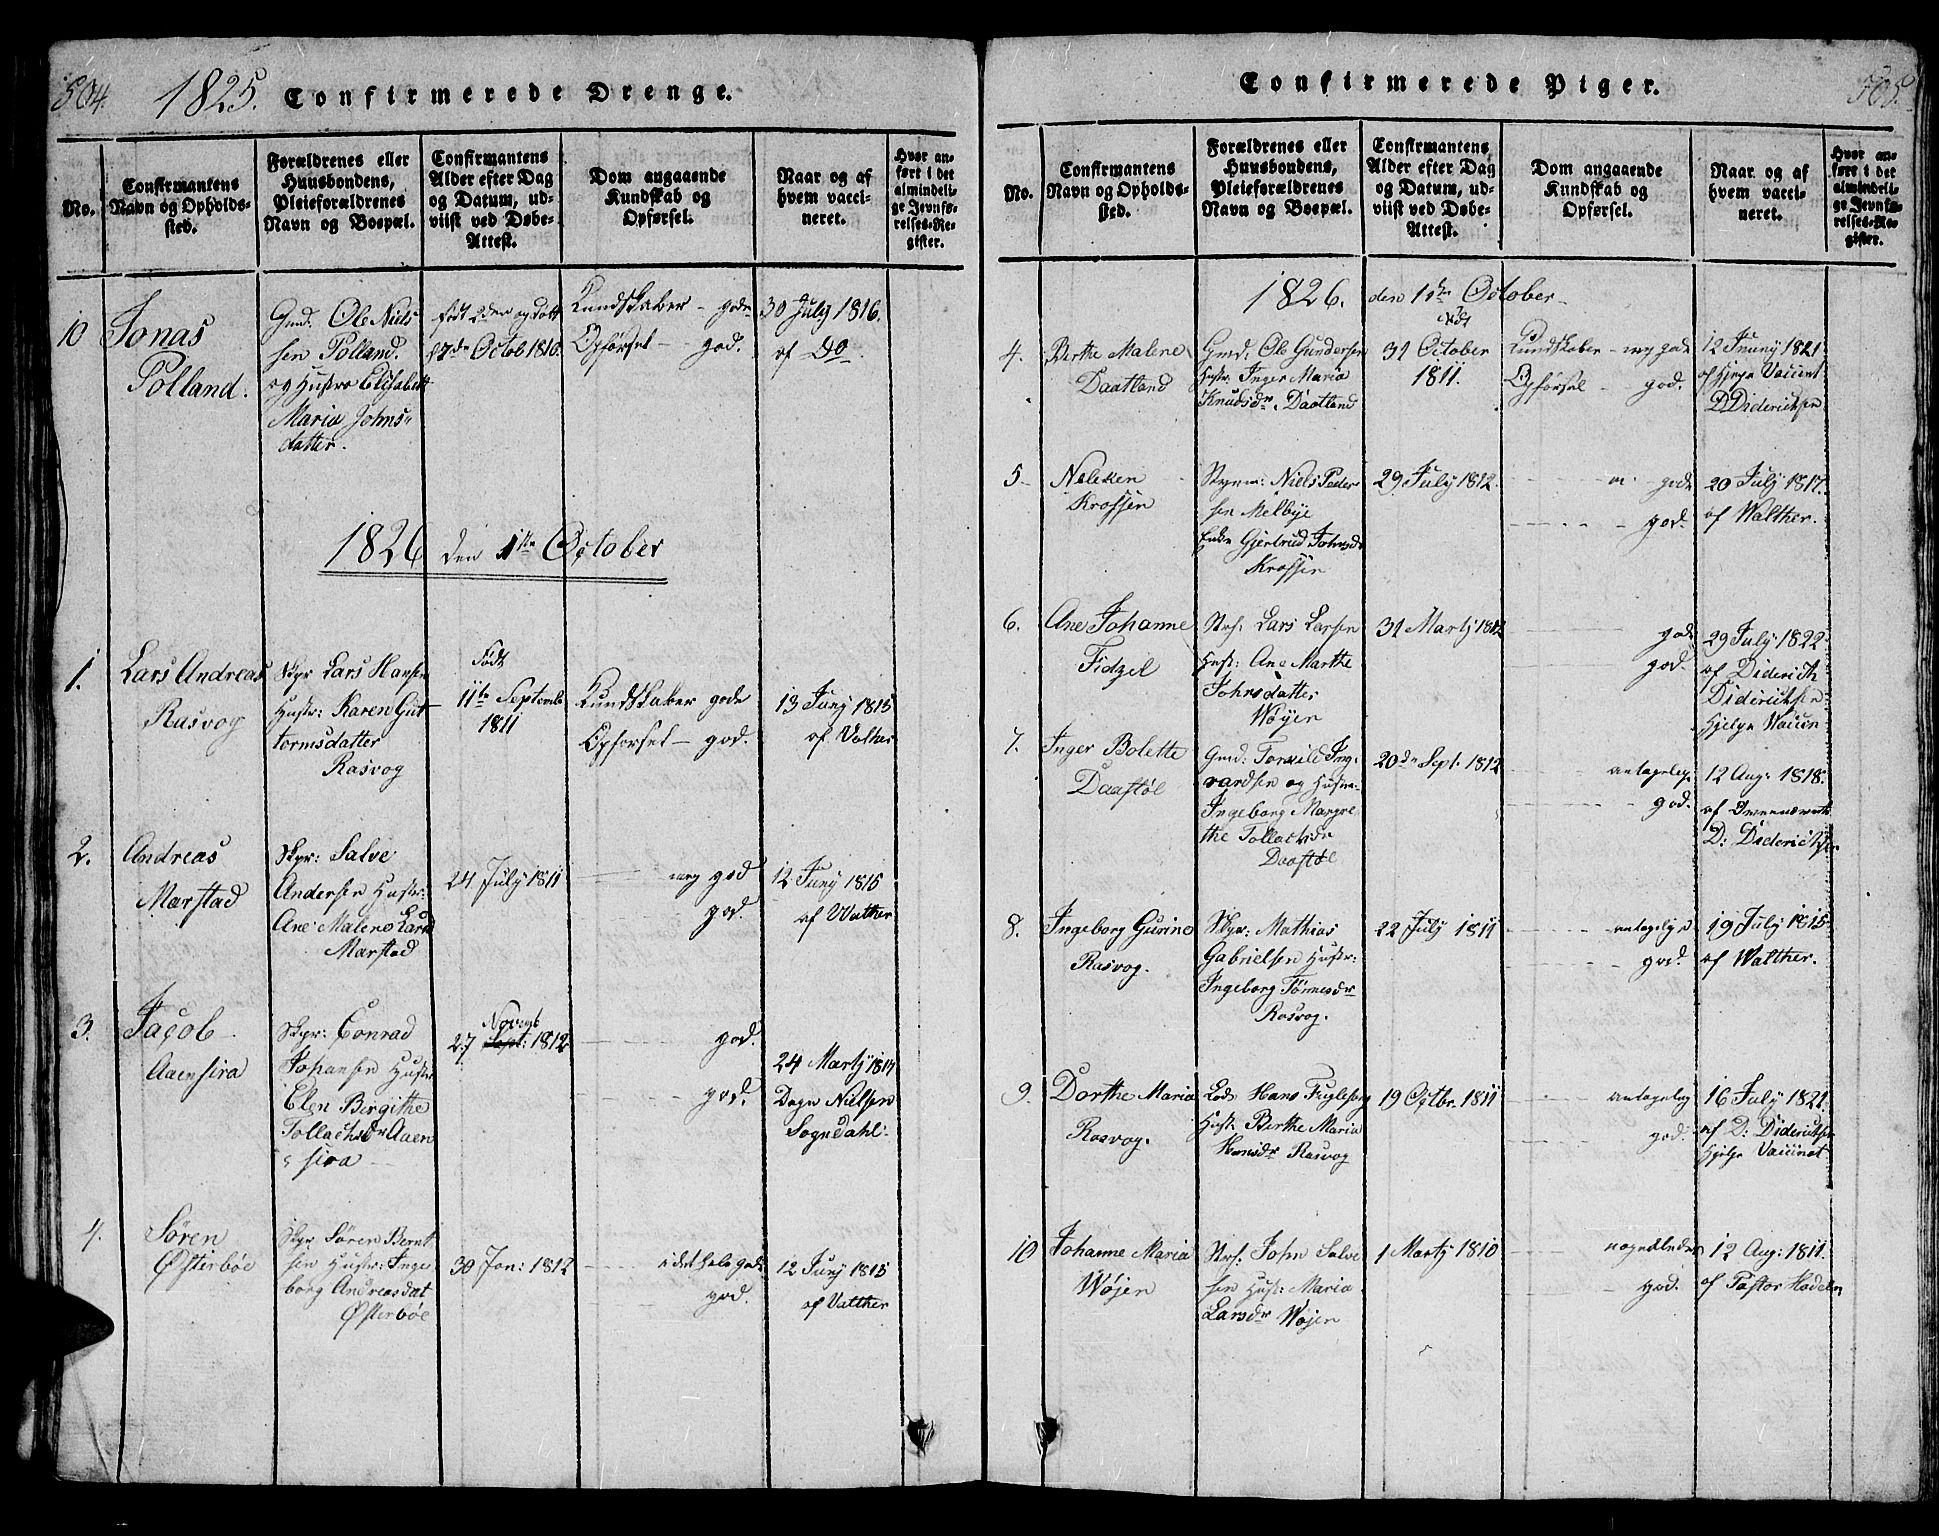 504. 1825. Confirmerede Drenge.
No.
Confirmantens
Navn og Opholds-
sted.
Forældrenes eller
Huusbondens,
Pleieforældrenes
Navn og Bospæl.
Confirmantens
Alder efter Dag
og Datum, ud-
viist ved Døbe-
Attest.
Dom angaaende
Kundskab og
Opførsel.
Naar og af
hvem vacci-
neret.
Hvor an-
ført i det
almindeli-
ge Jevnfø-
relses-Re-
gister.
10
Jonas
Polland.
Gmd. Ole Niels
sen Polland.
og Hustro Elisabeth
Maria Johns-
datter.
født 2den og døbt
17de Octob 1810.
Kundskaber - gode
Opførsel - god.
30 July 1816.
af Do
1826 den 1ste October
1.
Lars Andreas
Rasvog
Skpr Lars Hansen
Hustr: Karen Gut-
tormsdatter
Rasvog
Født
11te Septemb
1811
Kundskaber gode
Opførsel - god.
13 Juny 1815
af Valther
2.
Andreas
Marstad
Skpr: Salve
Andersen Hustr:
Ane Malene Lars
Marstad
24 July 1811
meg god
god.
12 Juny 1815
af Valther
3.
Jacob
Aaensira
Skpr: Conrad
Johansen Hustr
Elen Birgithe
Tollachsdr Aaen
sira
Novemb
27 Sept: 1812
god.
god.
24 Marty 1814
Degn Nielsen
Sogndahl.
4.
Søren
Østerbøe
Skpr Søren Bernt
sen Hustr: Inge
borg Andreasdat
Østerbøe
30 Jan: 1812
i det hele gode
god.
12 Juny 1815
af Valther
Confirmerede Piger. 505.
No.
Confirmantens
Navn og Opholds-
sted.
Forældrenes eller
Huusbondens,
Pleieforældrenes
Navn og Bospæl.
Confirmantens
Alder efter Dag
og Datum, ud-
viist ved Døbe-
Attest.
Dom angaaende
Kundskab og
Opførsel.
Naar og af
hvem vacci-
neret.
Hvor an-
ført i det
almindeli-
ge Jevnfø-
relses-Re-
gister.
1826. den 1ste October
4.
Berthe Malene
Daatland
Gmd. Ole Gundersen
Hustr. Inger Maria
Knudsdr. Daatland
født
31 October
1811.
Kundskaber - meg gode
Opførsel - god.
12 Juny 1821
af Hjelpe Vaccint
D Diderichsen
5
Neleken
Krossen
Styrm: Niels Peder
sen Melbye
Enke Gjertrud Johnsdr
Krossen
29 July 1812.
m. gode
god.
20 July 1817.
af Walther.
6.
Ane Johanne
Fidzel
Strs: Lars Larsen
Hust: Ane Marthe
Johnsdatter
Wøyen
31 Marty 1812
gode
god.
29 July 1822
af Diderich
Diderichsen
Hjelpe Vaccin
7.
Inger Bolette
Daastøl
Gmd: Torkild Ing-
vardsen og Hustr.
Ingeborg Margre
the Tollachsdr
Daastøl
20de Sept. 1812
antagelige
god.
12 Aug: 1818.
D: Diderichsen
8.
Ingeborg Gurine
Rasvog.
Skpr: Mathias
Gabrielsen Hustr:
Ingeborg Tønnesdr
Rasvog.
22 July 1811
antagelige
god.
19 July 1815
af Walther.
9.
Dorthe Maria
Rasvog.
Lods Hans Fuglesong
Hust. Berthe Maria
Hansdr Rasvog
19 Octbr. 1811
antagelig
god.
16 July 1821
af D: Diderichsen
Hjelpe Vaccinat
10
Johanne Maria
Wøjen
Strs. John Salve
sen Hust: Maria
Larsdr Wøjen
1 Marty 1810
nogenledes
god.
12 Aug: 1811.
af Pastor Hadeln